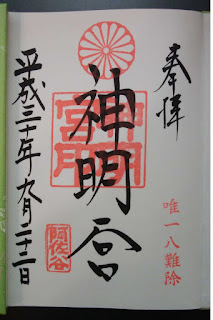 奉拝
唯一八難除
神明宮
神明
宮印
阿佐谷
平成三十年九月二十二日